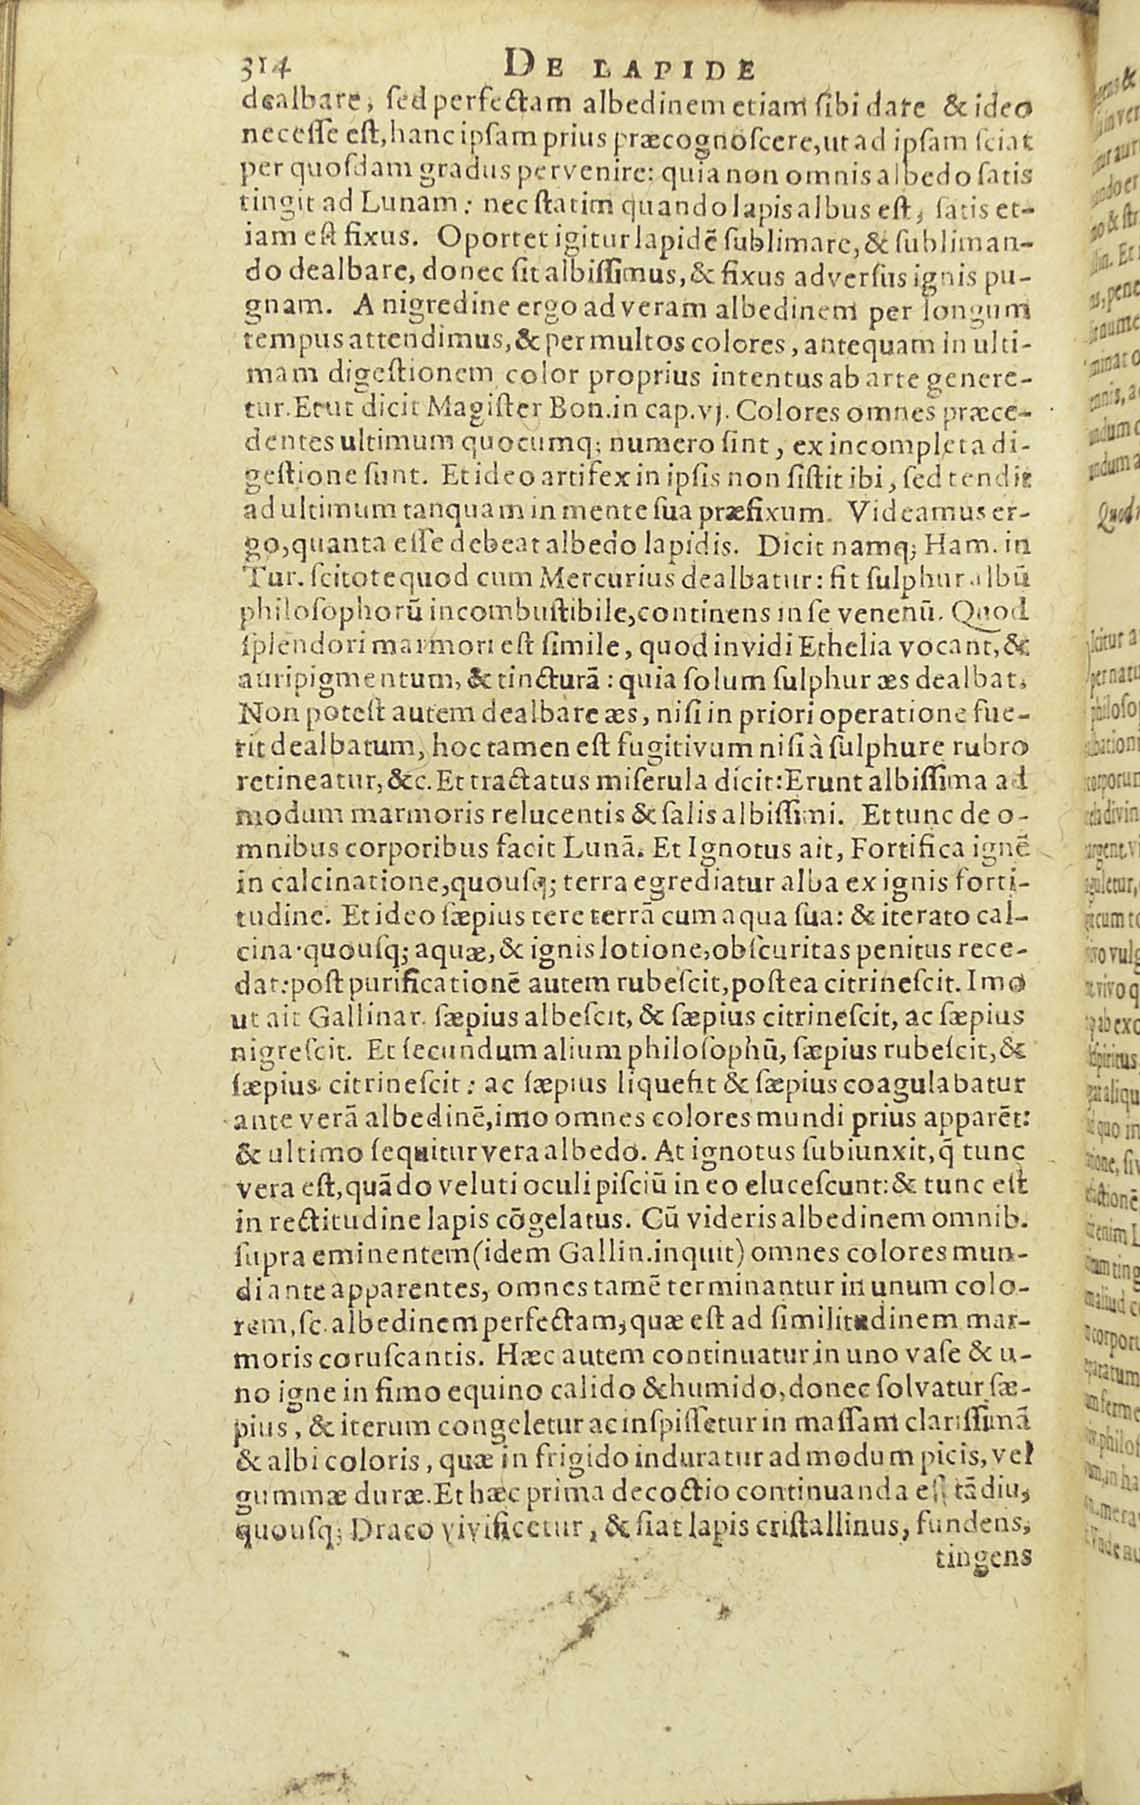 314 DE LAPIDE
dealbare, ſed perfectam albedinem etiam ſibi dare & ideo
neceſſe eſt, hanc ipſam prius præcognoſcere, ut ad ipſam ſciat
per quoſdam gradus pervenire: quia non omnis albedo ſatis
tingit ad Lunam: nec ſtatim quando lapis albus eſt, ſatis et-
iam eſt fixus. Oportet igitur lapidē ſublimare, & ſubliman-
do dealbare, donec ſit albiſſimus, & fixus adverſus ignis pu-
gnam. A nigredine ergo ad veram albedinem per longum
tempus attendimus, & per multos colores, antequam in ulti-
mam digeſtionem color proprius intentus ab arte genere-
tur. Et ut dicit Magiſter Bon. in cap. vj. Colores omnes præce-
dentes ultimum quocumq; numero ſint, ex incompleta di-
geſtione ſunt. Et ideo artifex in ipſis non ſiſtit ibi, ſed tendit
ad ultimum tanquam in mente ſua præfixum. Videamus er-
go, quanta eſſe debeat albedo lapidis. Dicit namq; Ham. in
Tur. ſcitote quod cum Mercurius dealbatur: fit ſulphur albū
philoſophorū incombuſtibile, continens in ſe venenū. Quod
ſplendori marmori eſt ſimile, quod invidi Ethelia vocant, &
auripigmentum, & tincturā: quia ſolum ſulphur æs dealbat.
Non poteſt autem dealbare æs, niſi in priori operatione fue-
rit dealbatum, hoc tamen eſt fugitivum niſi à ſulphure rubro
retineatur, &c. Et tractatus miſerula dicit: Erunt albiſſima ad
modum marmoris relucentis & ſalis albiſſimi. Et tunc de o-
mnibus corporibus facit Lunā. Et Ignotus ait, Fortifica ignē
in calcinatione, quouſq; terra egrediatur alba ex ignis forti-
tudine. Et ideo ſæpius tere terrā cum aqua ſua: & iterato cal-
cina quouſq; aquæ, & ignis lotione, obſcuritas penitus rece-
dat: poſt purificationē autem rubeſcit, poſtea citrineſcit. Imo
ut ait Gallinar. ſæpius albeſcit, & ſæpius citrineſcit, ac ſæpius
nigreſcit. Et ſecundum alium philoſophū, ſæpius rubeſcit, &
ſæpius citrineſcit: ac ſæpius liquefit & ſæpius coagulabatur
ante verā albedinē, imo omnes colores mundi prius apparēt:
& ultimo ſequitur vera albedo. At ignotus ſubiunxit, q̄ tunc
vera eſt, quādo veluti oculi piſciū in eo eluceſcunt: & tunc eſt
in rectitudine lapis cōgelatus. Cū videris albedinem omnib.
ſupra eminentem (idem Gallin. inquit) omnes colores mun-
di ante apparentes, omnes tamē terminantur in unum colo-
rem, ſc. albedinem perfectam, quæ eſt ad ſimilitudinem mar-
moris coruſcantis. Hæc autem continuatur in uno vaſe & u-
no igne in fimo equino calido & humido, donec ſolvatur ſæ-
pius, & iterum congeletur ac inſpiſſetur in maſſam clariſſimā
& albi coloris, quæ in frigido induratur ad modum picis, vel
gummæ duræ. Et hæc prima decoctio continuanda eſt tā diu,
quouſq; Draco vivificetur, & fiat lapis criſtallinus, fundens,
tingens